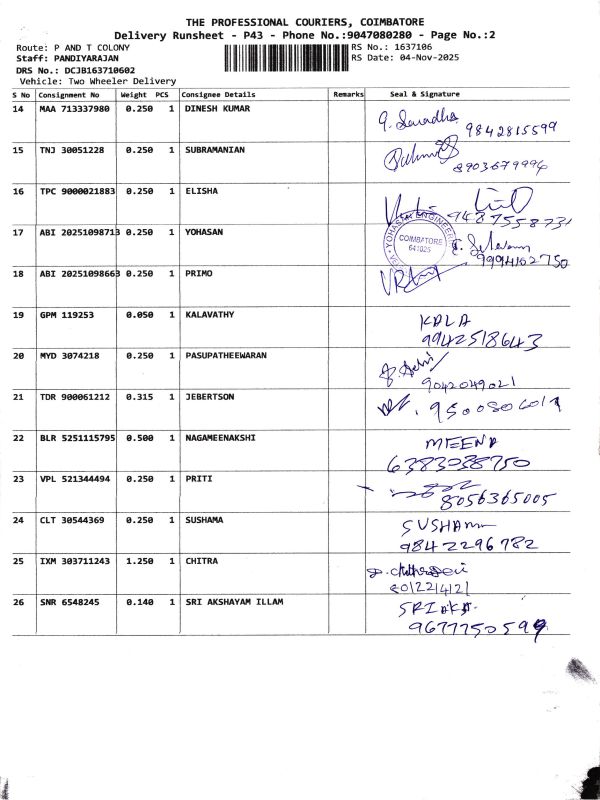 THE PROFESSIONAL COURIERS, COIMBATORE
Delivery Runsheet - P43 - Phone No.:9047080280 - Page No.:2
Route: P AND T COLONY
RS No.: 1637106
Staff: PANDIYARAJAN
RS Date: 04-Nov-2025
DRS No.: DCJB163710602
Vehicle: Two Wheeler Delivery
S No Consignment No Weight PCS Consignee Details Remarks Seal & Signature
14 MAA 713337980 0.250 1 DINESH KUMAR
9842815599
15 TNJ 30051228 0.250 1 SUBRAMANIAN
8903679994
16 TPC 9000021883 0.250 1 ELISHA
9487558731
17 ABI 20251098713 0.250 1 YOHASAN
YOHASAN ENGINEER
COIMBATORE
641025
9994102750
18 ABI 20251098663 0.250 1 PRIMO
19 GPM 119253 0.050 1 KALAVATHY
KALA
9942518643
20 MYD 3074218 0.250 1 PASUPATHEEWARAN
9042049021
21 TDR 900061212 0.315 1 JEBERTSON
22 BLR 5251115795 0.500 1 NAGAMEENAKSHI
MEENA
6383038750
23 VPL 521344494 0.250 1 PRITI
8056365005
24 CLT 30544369 0.250 1 SUSHAMA
9842296782
25 IXM 303711243 1.250 1 CHITRA
26 SNR 6548245 0.140 1 SRI AKSHAYAM ILLAM
9677750599